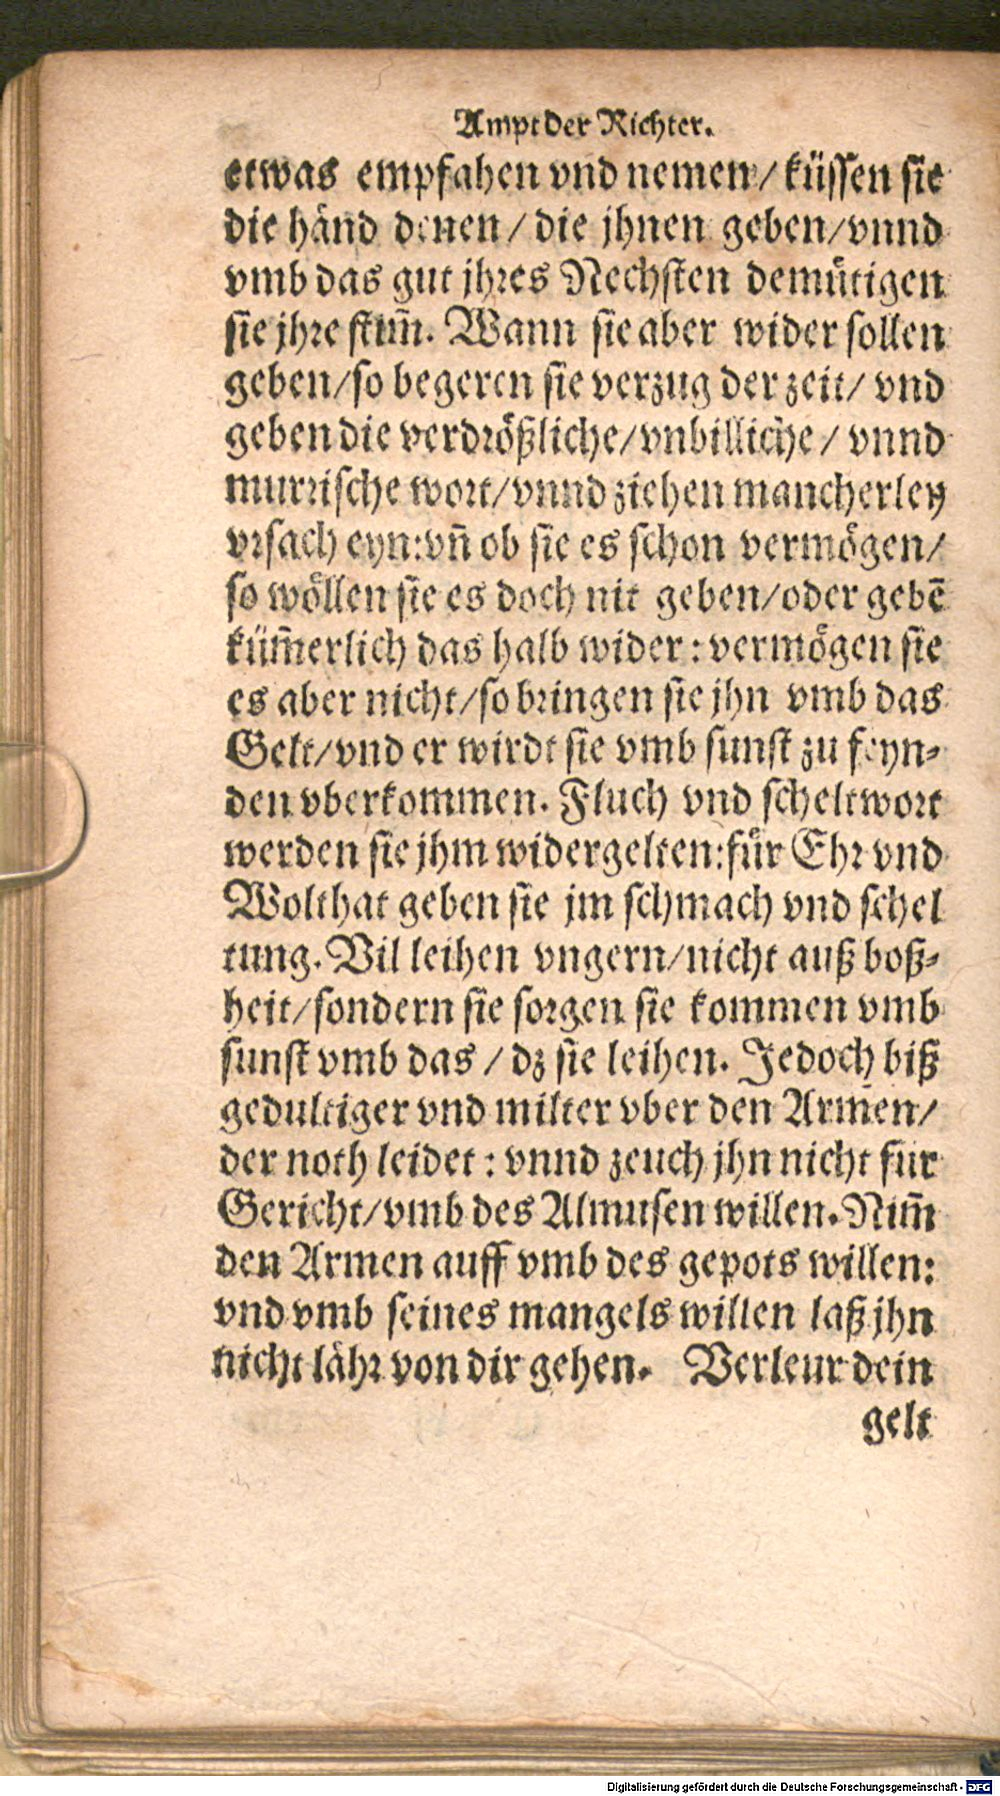 Ampt der Richter.
etwas empfahen vnd nemen / küssen sie
die händ denen / die jhnen geben / vnnd
vmb das gut jhres Nechsten demütigen
sie jhre stim̃. Wann sie aber wider sollen
geben / so begeren sie verzug der zeit / vnd
geben die verdrößliche / vnbilliche / vnnd
murrische wort / vnnd ziehen mancherley
vrsach eyn: vñ ob sie es schon vermögen /
so wöllen sie es doch nit geben / oder gebẽ
küm̃erlich das halb wider : vermögen sie
es aber nicht / so bringen sie jhn vmb das
Gelt / vnd er wirdt sie vmb sunst zu feyn-
den vberkommen. Fluch vnd scheltwort
werden sie jhm widergelten: für Ehr vnd
Wolthat geben sie jm schmach vnd schel
tung. Vil leihen vngern / nicht auß boß-
heit / sondern sie sorgen sie kommen vmb
sunst vmb das / dz sie leihen. Jedoch biß
gedultiger vnd milter vber den Armen /
der noth leidet : vnnd zeuch jhn nicht für
Gericht / vmb des Almusen willen. Nim̃
den Armen auff vmb des gepots willen:
vnd vmb seines mangels willen laß jhn
nicht lähr von dir gehen. Verleur dein
gelt
Digitalisierung gefördert durch die Deutsche Forschungsgemeinschaft - DFG